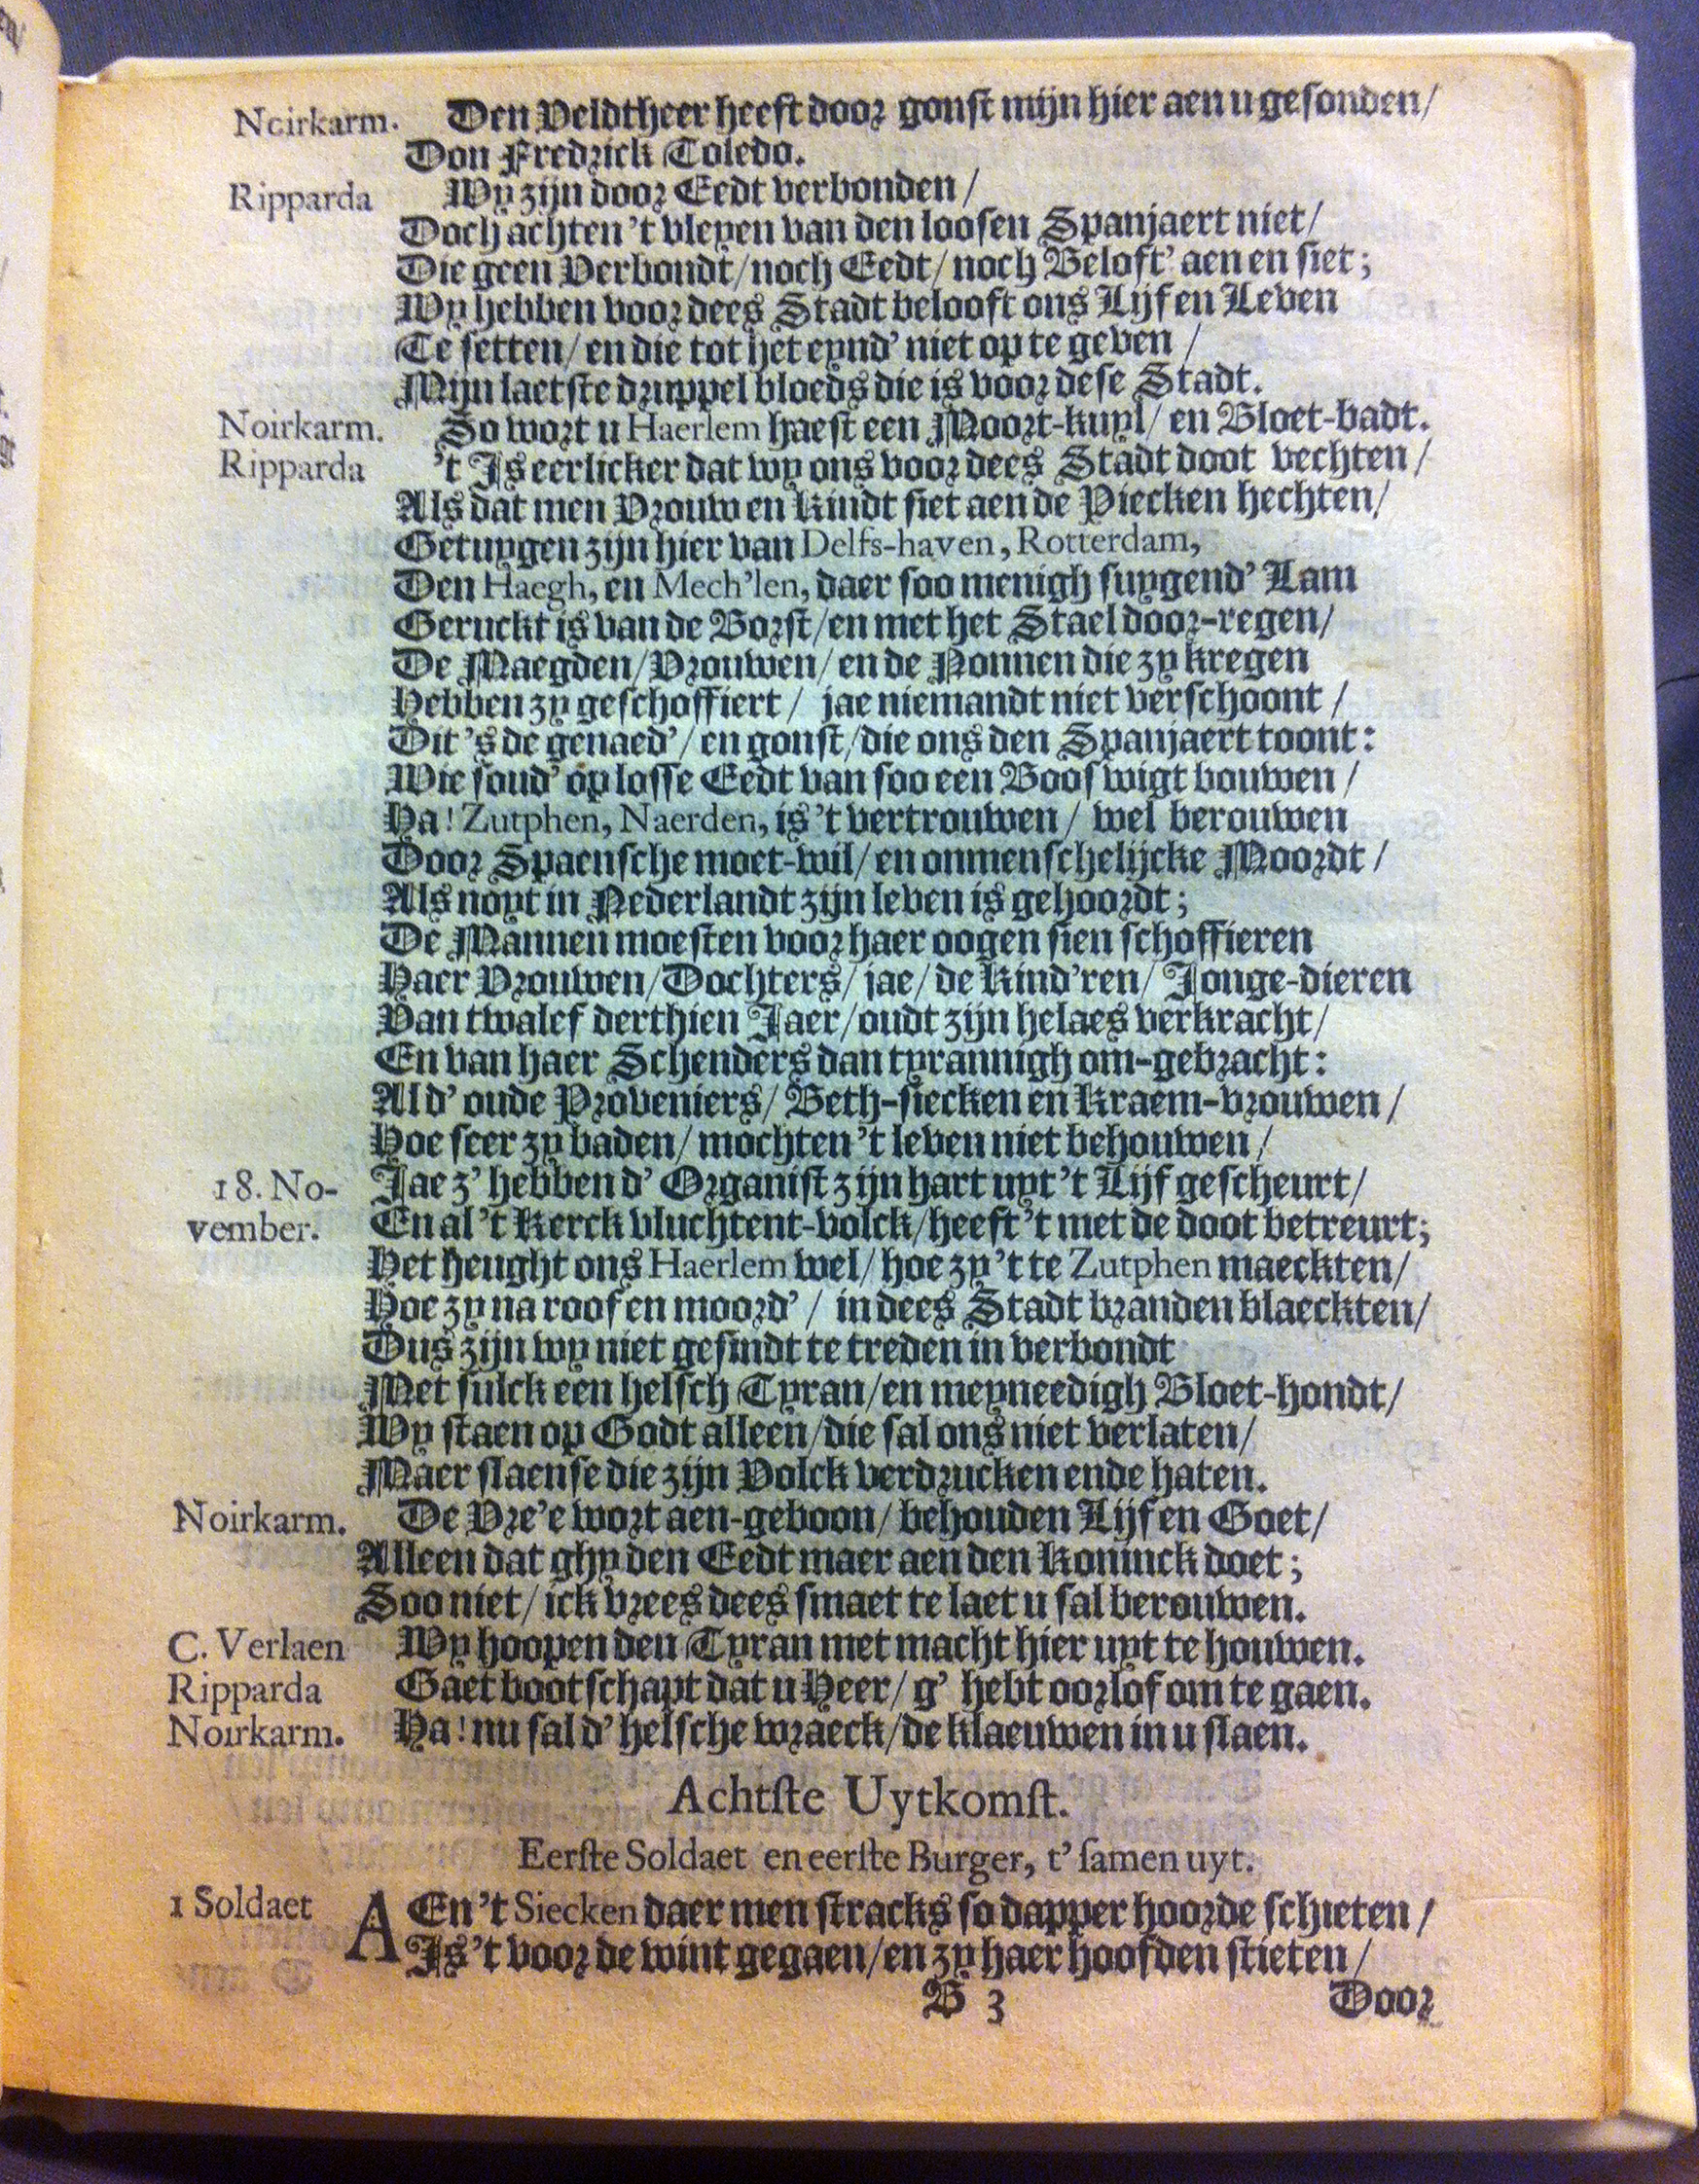 Noirkarm. Den Veldtheer heeft door gonst mijn hier aen u gesonden/
Don Fredrick Toledo.
Ripparda Wy zijn door Eedt verbonden/
Doch achten 't vleyen van den loosen Spanjaert niet/
Die geen Verbondt/noch Eedt/noch Beloft' aen en siet;
Wy hebben voor dees Stadt belooft ons Lijf en Leven
Te setten/en die tot het eynd' niet op te geven/
Mijn laetste druppel bloeds die is voor dese Stadt.
Noirkarm. So wort u Haerlem haest een Moort-kuyl/en Bloet-badt.
Ripparda 't Is eerlicker dat wy ons voor dees Stadt doot vechten/
Als dat men Vrouw en Kindt siet aen de Piecken hechten/
Getuygen zijn hier van Delfs-haven, Rotterdam,
Den Haegh, en Mech'len, daer soo menigh suygend' Lam
Geruckt is van de Borst/en met het Stael door-regen/
De Maegden/Vrouwen/en de Nonnen die zy kregen
Hebben zy geschoffiert/jae niemandt niet verschoont/
Dit 's de genaed'/en gonst/die ons den Spanjaert toont:
Wie soud' op losse Eedt van soo een Booswigt bouwen/
Ha! Zutphen, Naerden, is 't vertrouwen/wel berouwen
Door Spaensche moet-wil/en onmenschelijcke Moordt/
Als noyt in Nederlandt zijn leven is gehoordt;
De Mannen moesten voor haer oogen sien schoffieren
Haer Vrouwen/Dochters/jae/de Kind'ren/Jonge-dieren
Van twalef derthien Jaer/oudt zijn helaes verkracht/
En van haer Schenders dan tyrannigh om-gebracht:
Al d' oude Proveniers/Beth-siecken en Kraem-vrouwen/
Hoe seer zy baden/mochten 't leven niet behouwen/
18. No- Jae z' hebben d' Organist zijn hart uyt 't Lijf gescheurt/
vember. En al 't Kerck vluchtent-volck/heeft 't met de doot betreurt;
Het heught ons Haerlem wel/hoe zy 't te Zutphen maeckten/
Hoe zy na roof en moord'/in dees Stadt branden blaeckten/
Dus zijn wy niet gesindt te treden in verbondt
Met sulck een helsch Tyran/en meyneedigh Bloet-hondt/
Wy staen op Godt alleen/die sal ons niet verlaten/
Maer slaen se die zijn Volck verdrucken ende haten.
Noirkarm. De Vre'e wort aen-geboon/behouden Lijf en Goet/
Alleen dat ghy den Eedt maer aen den Koninck doet;
Soo niet/ick vrees dees smaet te laet u sal berouwen.
C. Verlaen Wy hoopen den Tyran met macht hier uyt te houwen.
Ripparda Gaet bootschapt dat u Heer/g' hebt oorlof om te gaen.
Noirkarm. Ha! nu sal d' helsche wraeck/de klaeuwen in u slaen.
Achtste Uytkomst.
Eerste Soldaet en eerste Burger, t' samen uyt.
1 Soldaet AEn 't Siecken daer men stracks so dapper hoorde schieten/
Is 't voor de wint gegaen/en zy haer hoofden stieten/
B 3 Door